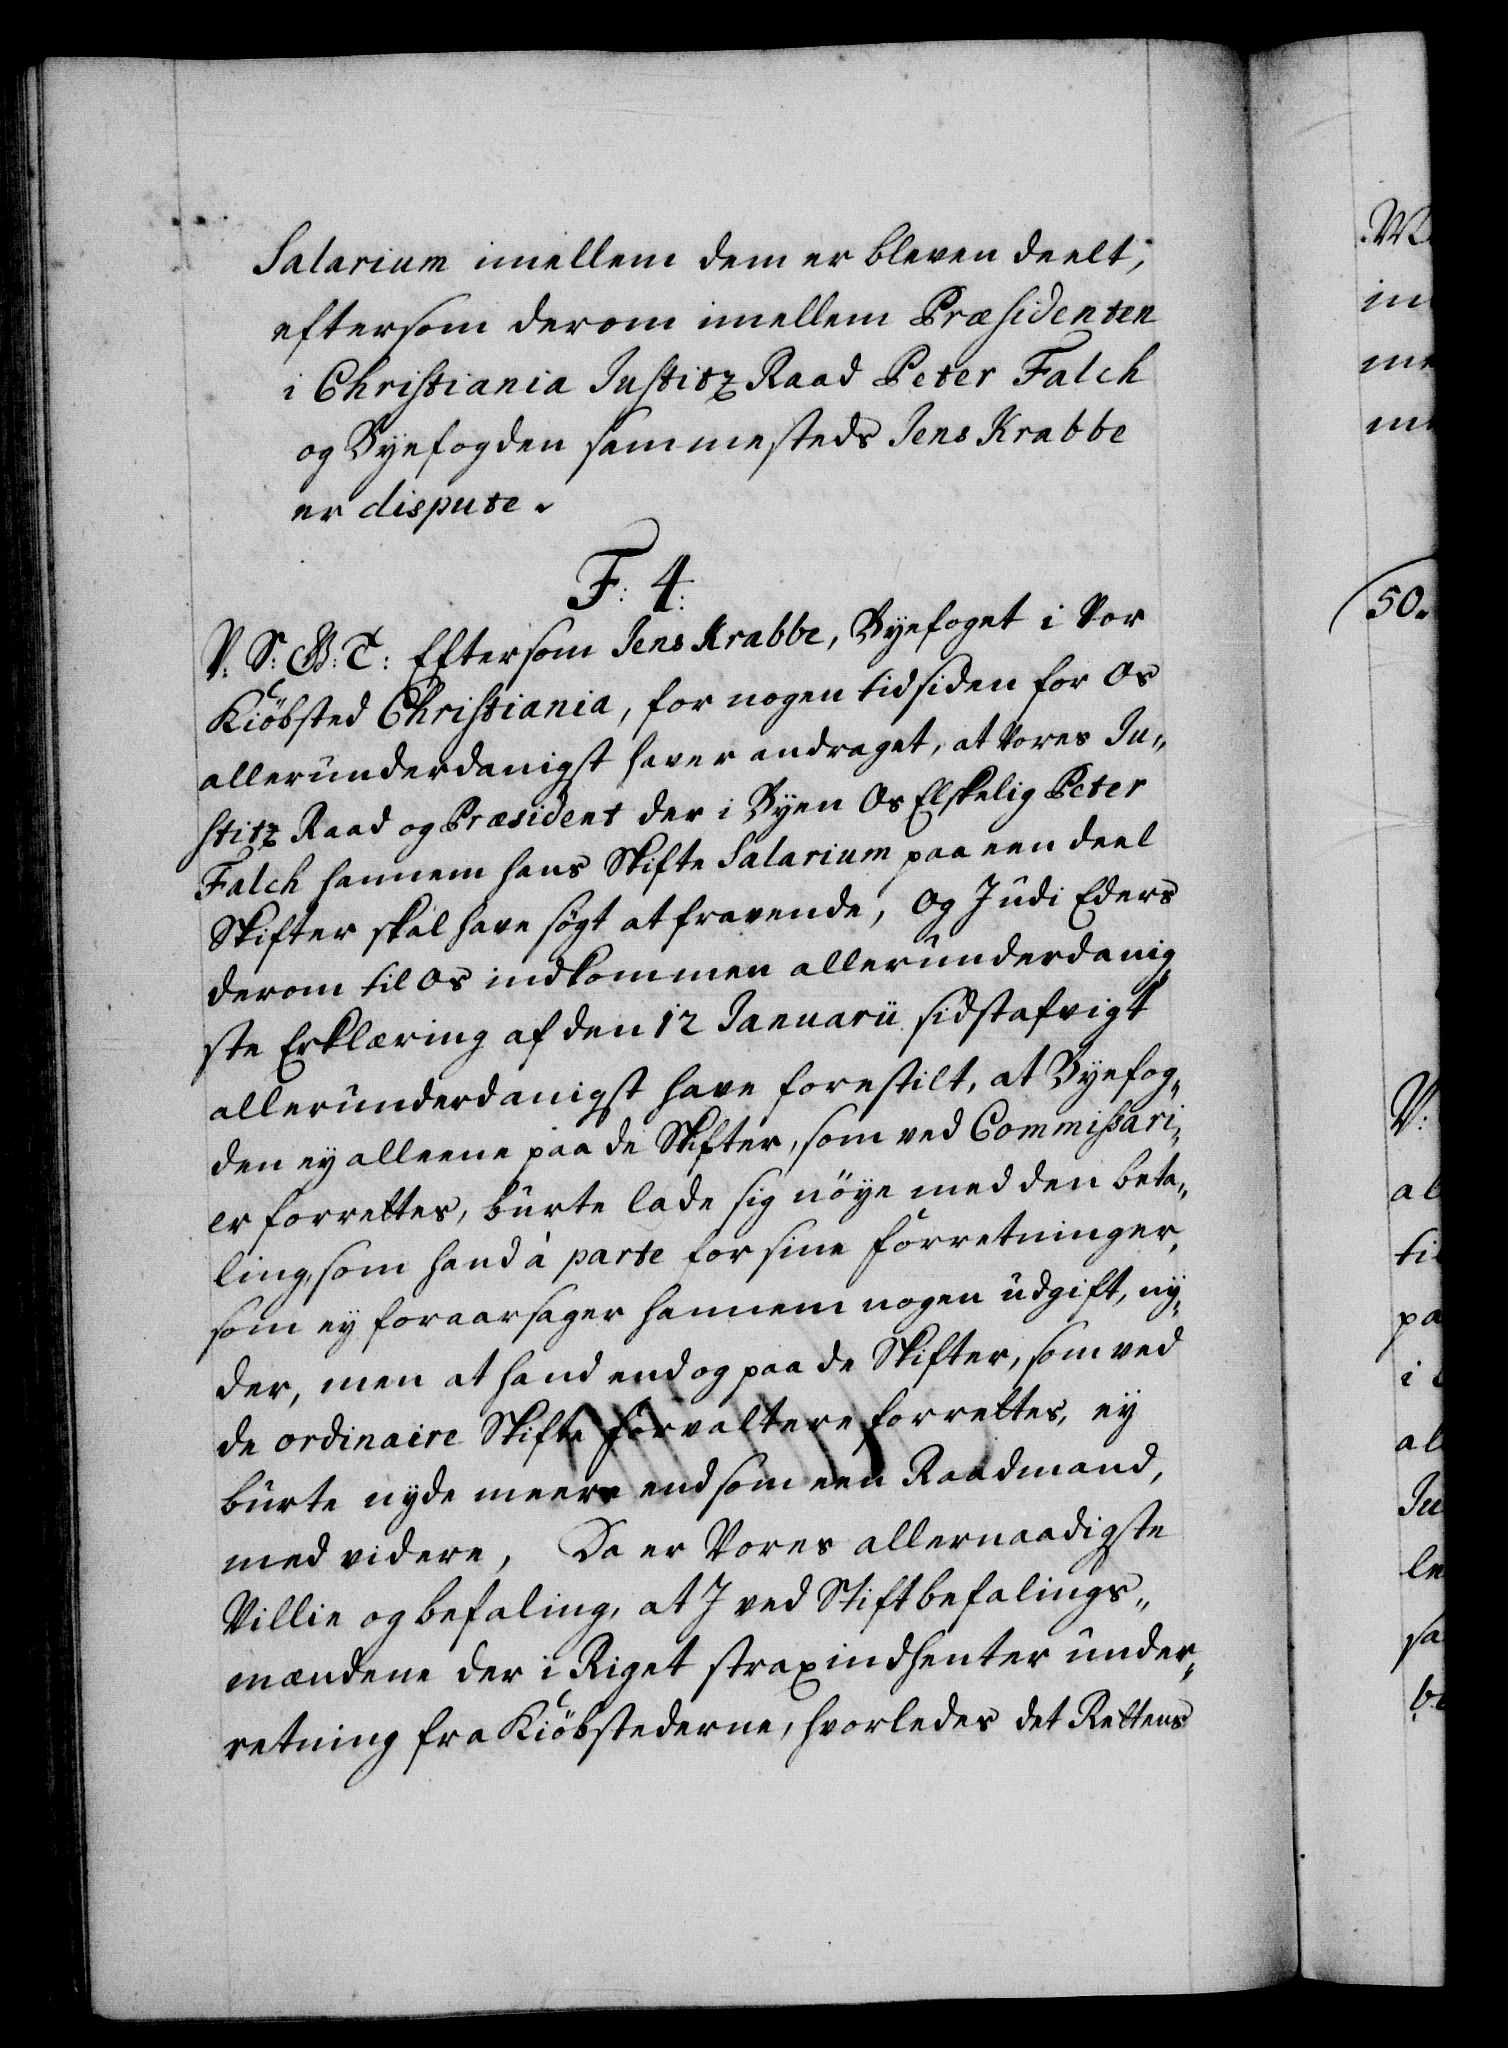 Salarium imellem dem er bleven deelt,
eftersom derom imellem Præsidenten
i Christiania Justitz Raad Peter Falch
og Byefogden sammesteds Jens Krabbe
er dispute.
F: 4:
V: S: G: T: Eftersom Jens Krabbe, Byefoget i Vor
Kiöbsted Christiania, for nogen tid siden for Os
allerunderdanigst haver andraget, at Vores Ju„
stitz Raad og Præsident der i Byen Os Elskelig Peter
Falch hannem hans Skifte Salarium paa een deel
Skifter skal have søgt at fravende, Og I udi Eders
derom til Os indkommen allerunderdanig„
ste Erklæring af den 12 Januarii sidstafvigt
allerunderdanigst have forestilt, at Byefog„
den ey alleene paa de Skifter, som ved Commissari„
er forrettes, burte lade sig nöye med den beta„
ling, som hand à parte for sine forretninger,
som ey foraarsager hannem nogen udgift, ny„
der, men at hand end og paa de Skifter, som ved
de ordinaire Skifte forvaltere forrettes, ey
burte nyde meere end som een Raadmand,
med videre, Da er Vores allernaadigste
Villie og befaling, at I ved Stiftbefalings„
mændene der i Riget strax indhenter under„
retning fra Kiöbstederne, hvorledes det Rettens
50.